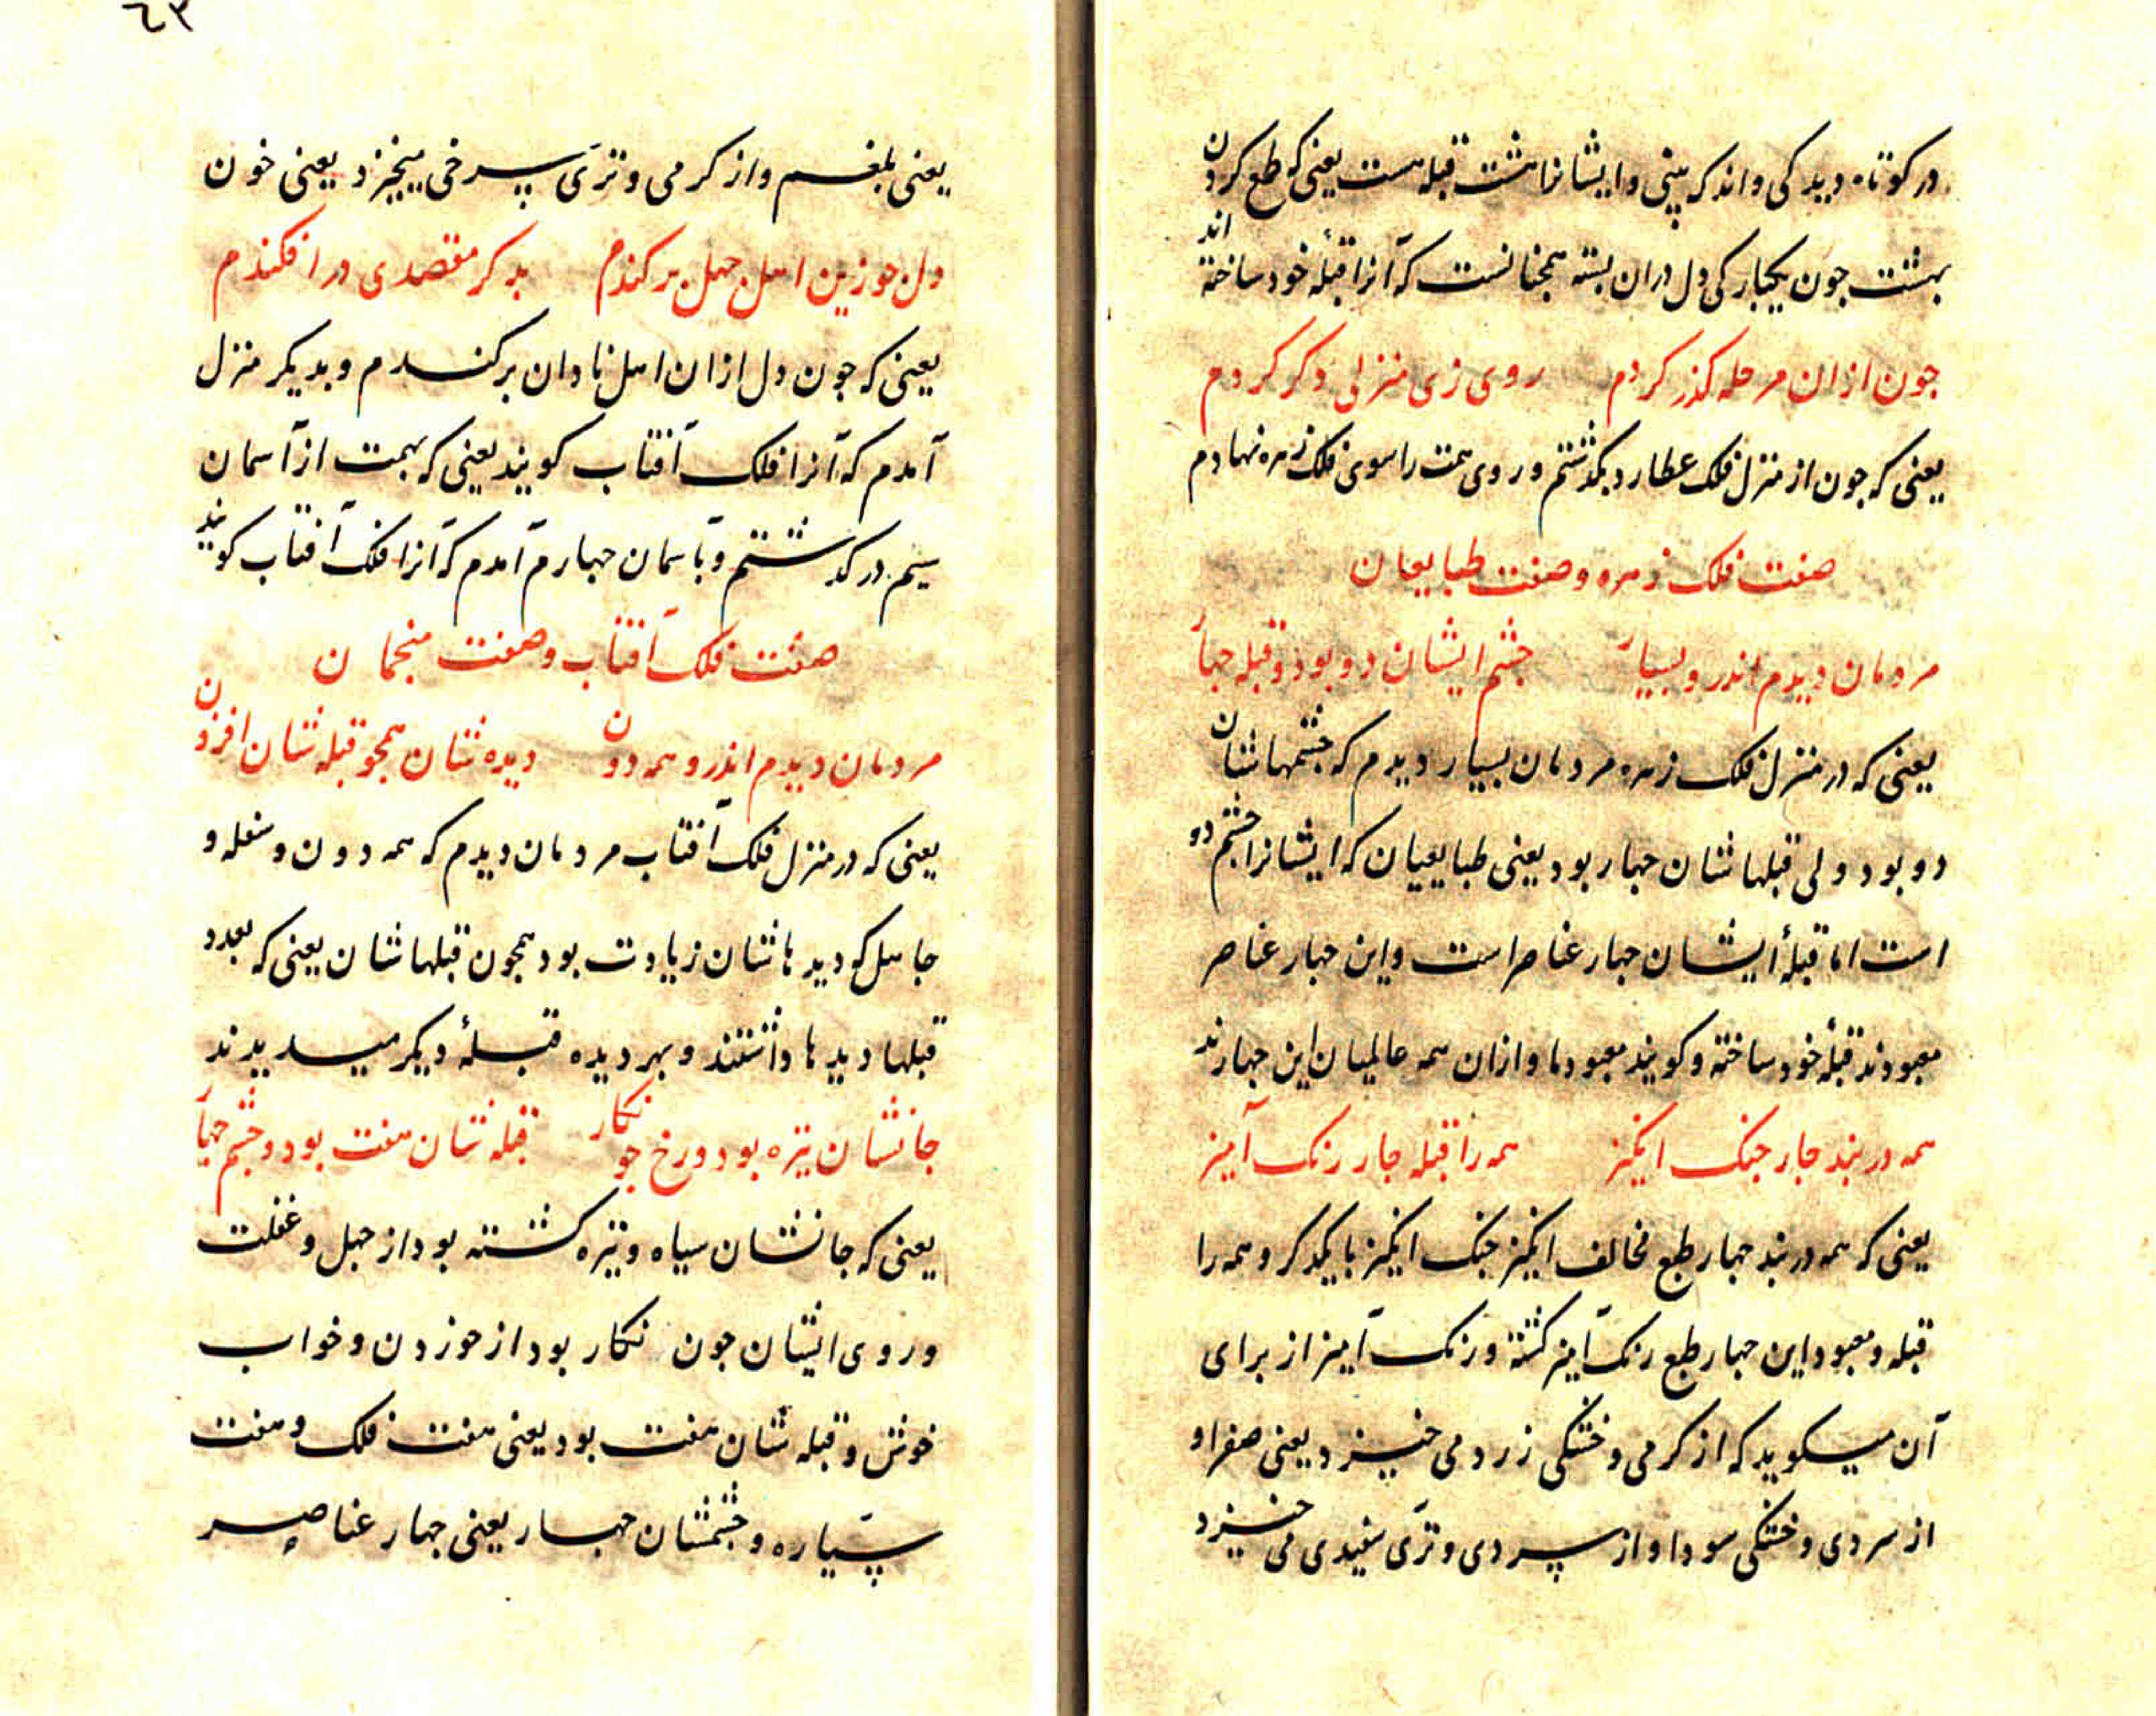 در کوتاه دیدکی و اندکه بینی و ایشانرا هشت قبله هست یعنی که طمع کردن
بهشت جون یکبارکی دل دران بسته همجنانست که آنرا قبلۀ خود ساخته اند
جون ازان مرحله کذر کردم روی زی منزلی دکر کردم
یعنی که جون از منزل فلک عطارد بکذشتم و روی همت را سوی فلک زهره نهادم
صفت فلک زهره و صفت طبایعیان
مردمان دیدم اندرو بسیار جشم ایشان دو بود و قبله جهار
یعنی که در منزل فلک زهره مردمان بسیار دیدم که جشمهاشان
دو بود ولی قبلهاشان جهار بود یعنی طبایعیان که ایشانرا جشم دو
است اما قبلۀ ایشان جهار عناصر است و این جهار عناصر
معبودند قبلۀ خود ساخته و کویند معبود ما و ازان همه عالمیان این جهارند
همه در بند جار جنک انکیز همه را قبله جار رنک آمیز
یعنی که همه در بند جهار طبع مخالف انکیز جنک انکیز با یکدکر و همه را
قبله و معبود این جهار طبع رنک آمیز کشته و رنک آمیز از برای
آن میکوید که از کرمی و خشکی زرد می خیزد یعنی صفرا و
از سردی و خشکی سودا و از سردی و تری سفیدی می خیزد
٤٣
یعنی بلغم و از کرمی و تری سرخی میخیزد یعنی خون
دل جو زین اهل جهل برکندم بدکر مقصدی در افکندم
یعنی که جون دل ازان اهل نادان برکندم و بدیکر منزل
آمدم که آنرا فلک آفتاب کویند یعنی که بهمت از آسمان
سیم درکذشتم و بآسمان جهارم آمدم که آنرا فلک آفتاب کویند
صفت فلک آفتاب و صفت منجمان
مردمان دیدم اندرو همه دون دیده شان همجو قبله شان افزون
یعنی که در منزل فلک آفتاب مردمان دیدم که همه دون و سفله و
جاهل که دیدهاشان زیادت بود همجون قبلهاشان یعنی که بعدد
قبلها دیدها داشتند و بهر دیده قبلۀ دیکر میدیدند
جانشان تیره بود و رخ جو نکار قبله شان هفت بود و جشم جهار
یعنی که جانشان سیاه و تیره کشته بود از جهل و غفلت
و روی ایشان جون نکار بود از خوردن و خواب
خوش و قبله شان هفت بود یعنی هفت فلک و هفت
سیاره و جشمشان جهار یعنی جهار عناصر